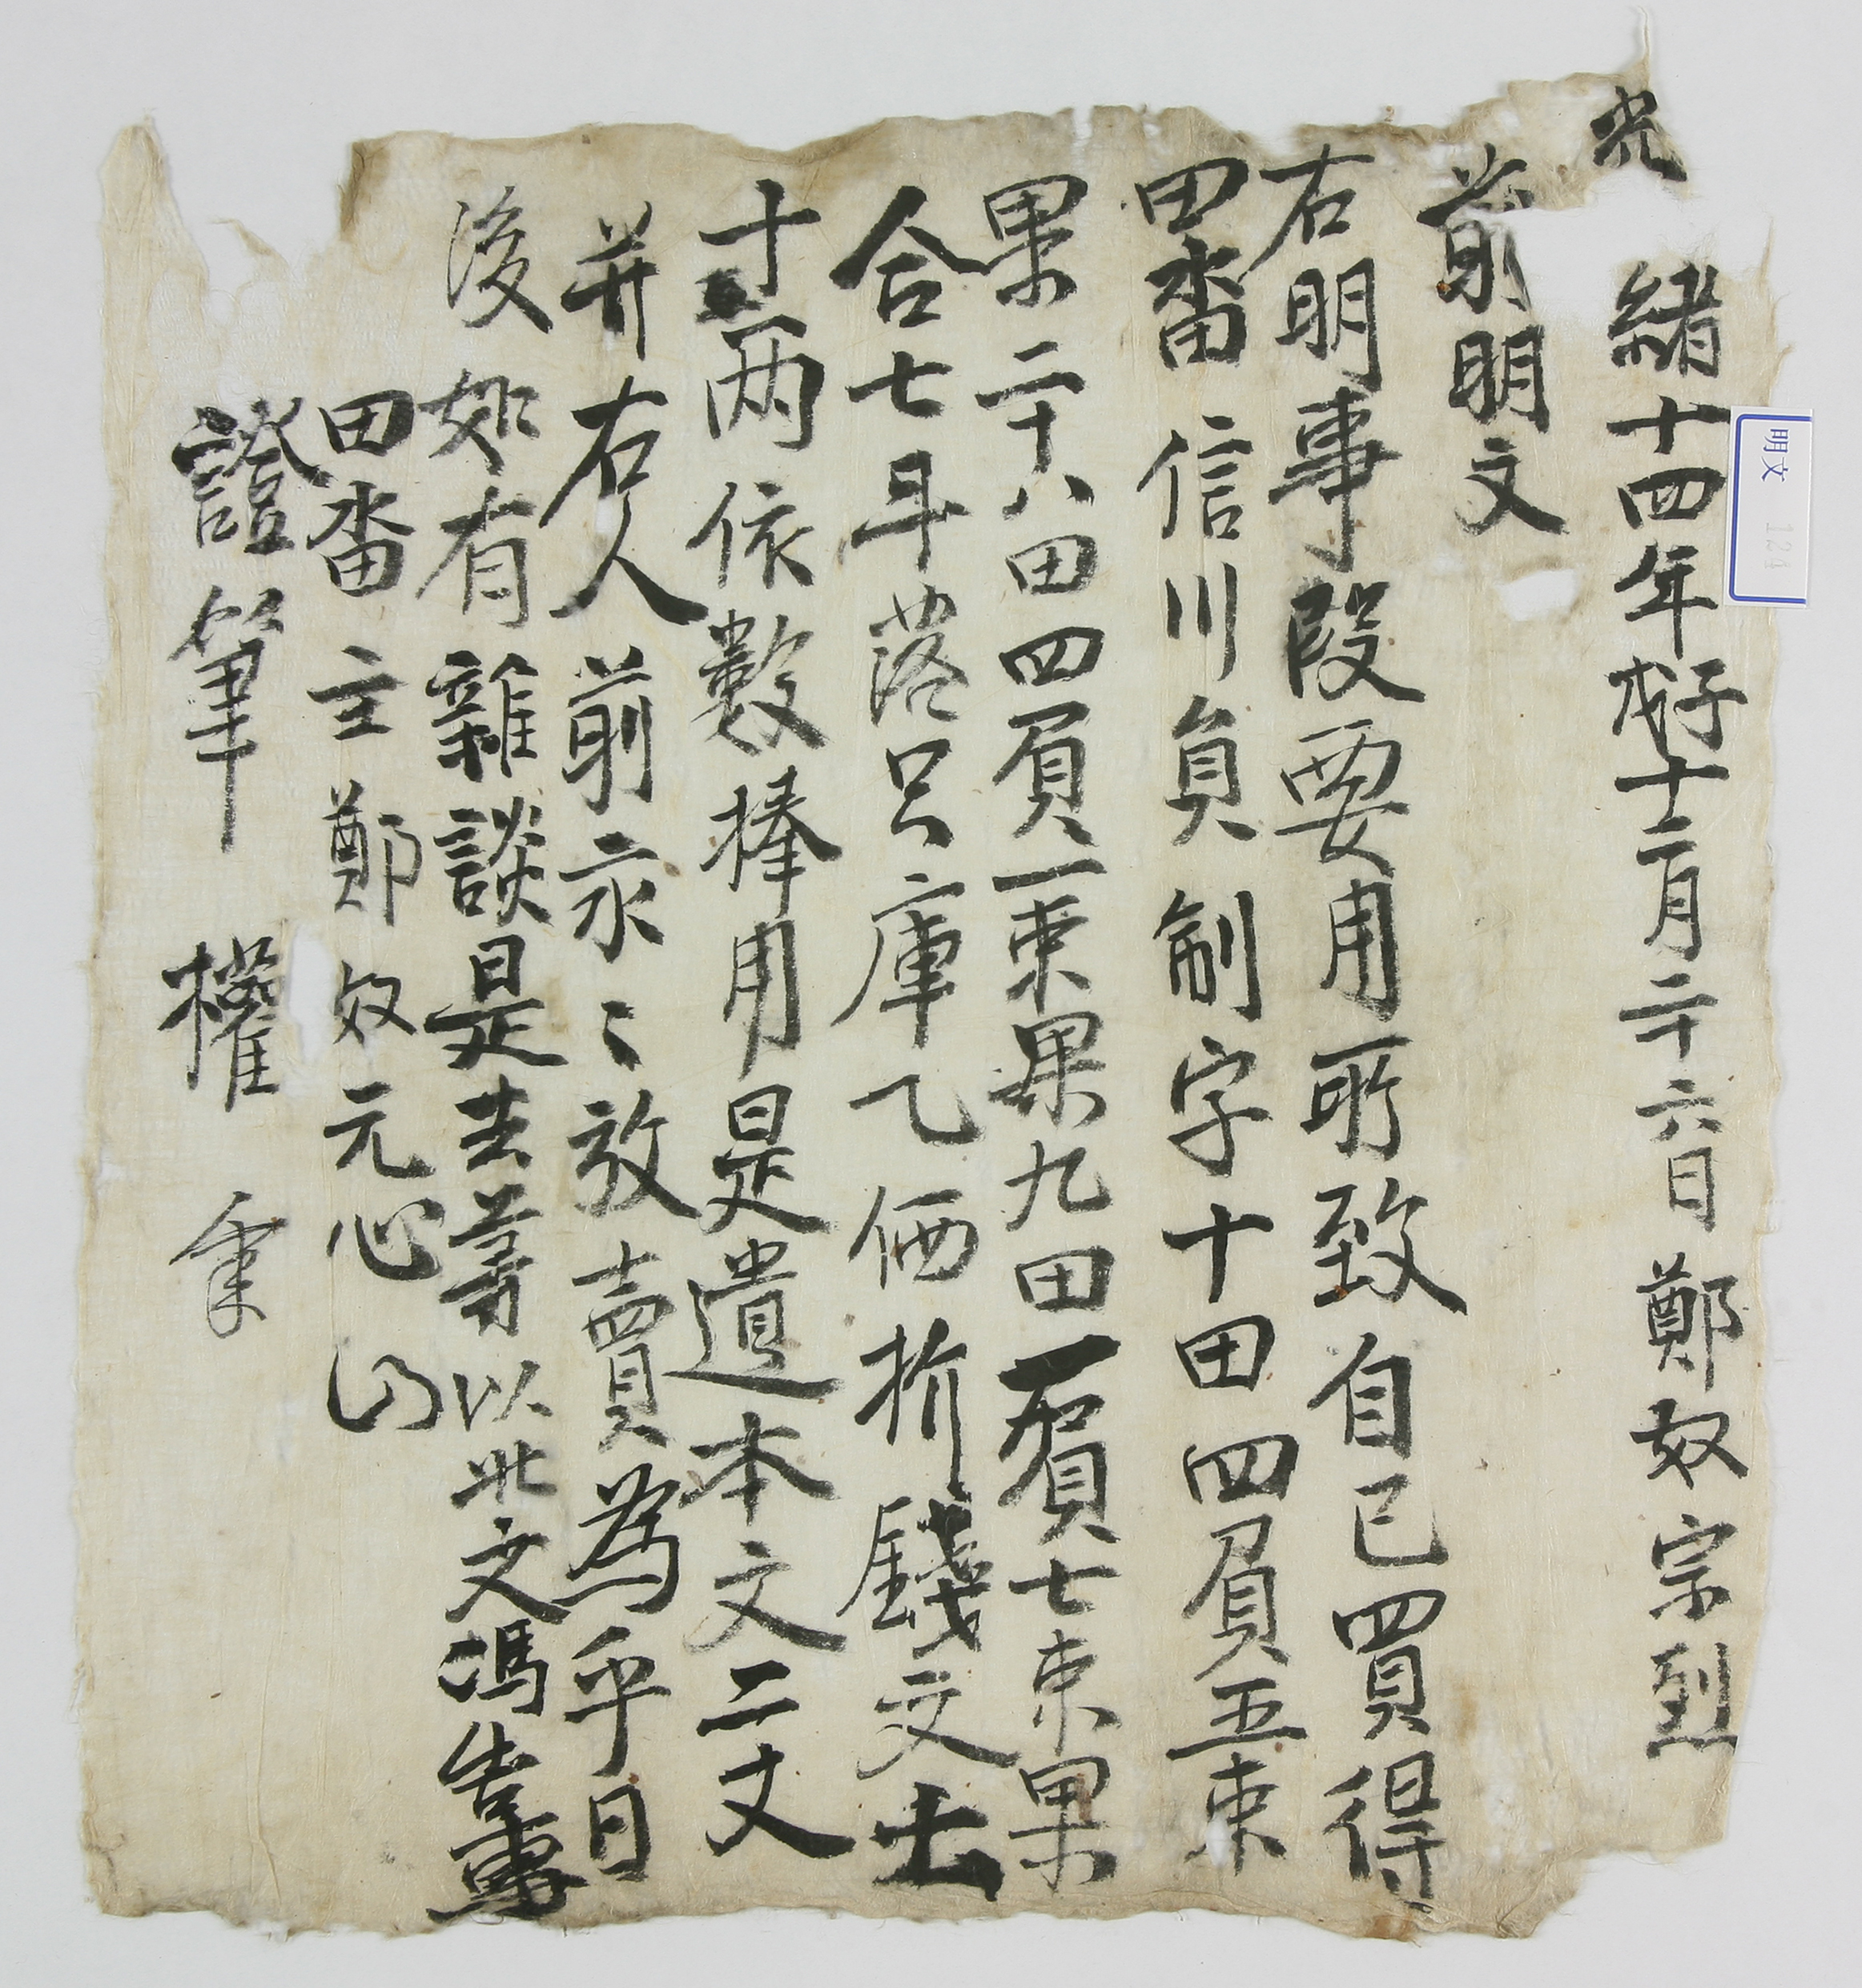 光緖十四年戊子十二月二十六日鄭奴宗烈
前明文
右明事段要用所致自己買得
田畓信川員制字十田四負五束
果二十八田四負一束果九田一負七束果
合七斗落只庫乙価折錢文
十両依數捧用是遣本文二丈
并右人前永〻放賣為乎日
後如有雜談是去等以此文馮告事
田畓主鄭奴元心
證筆權
明文 124